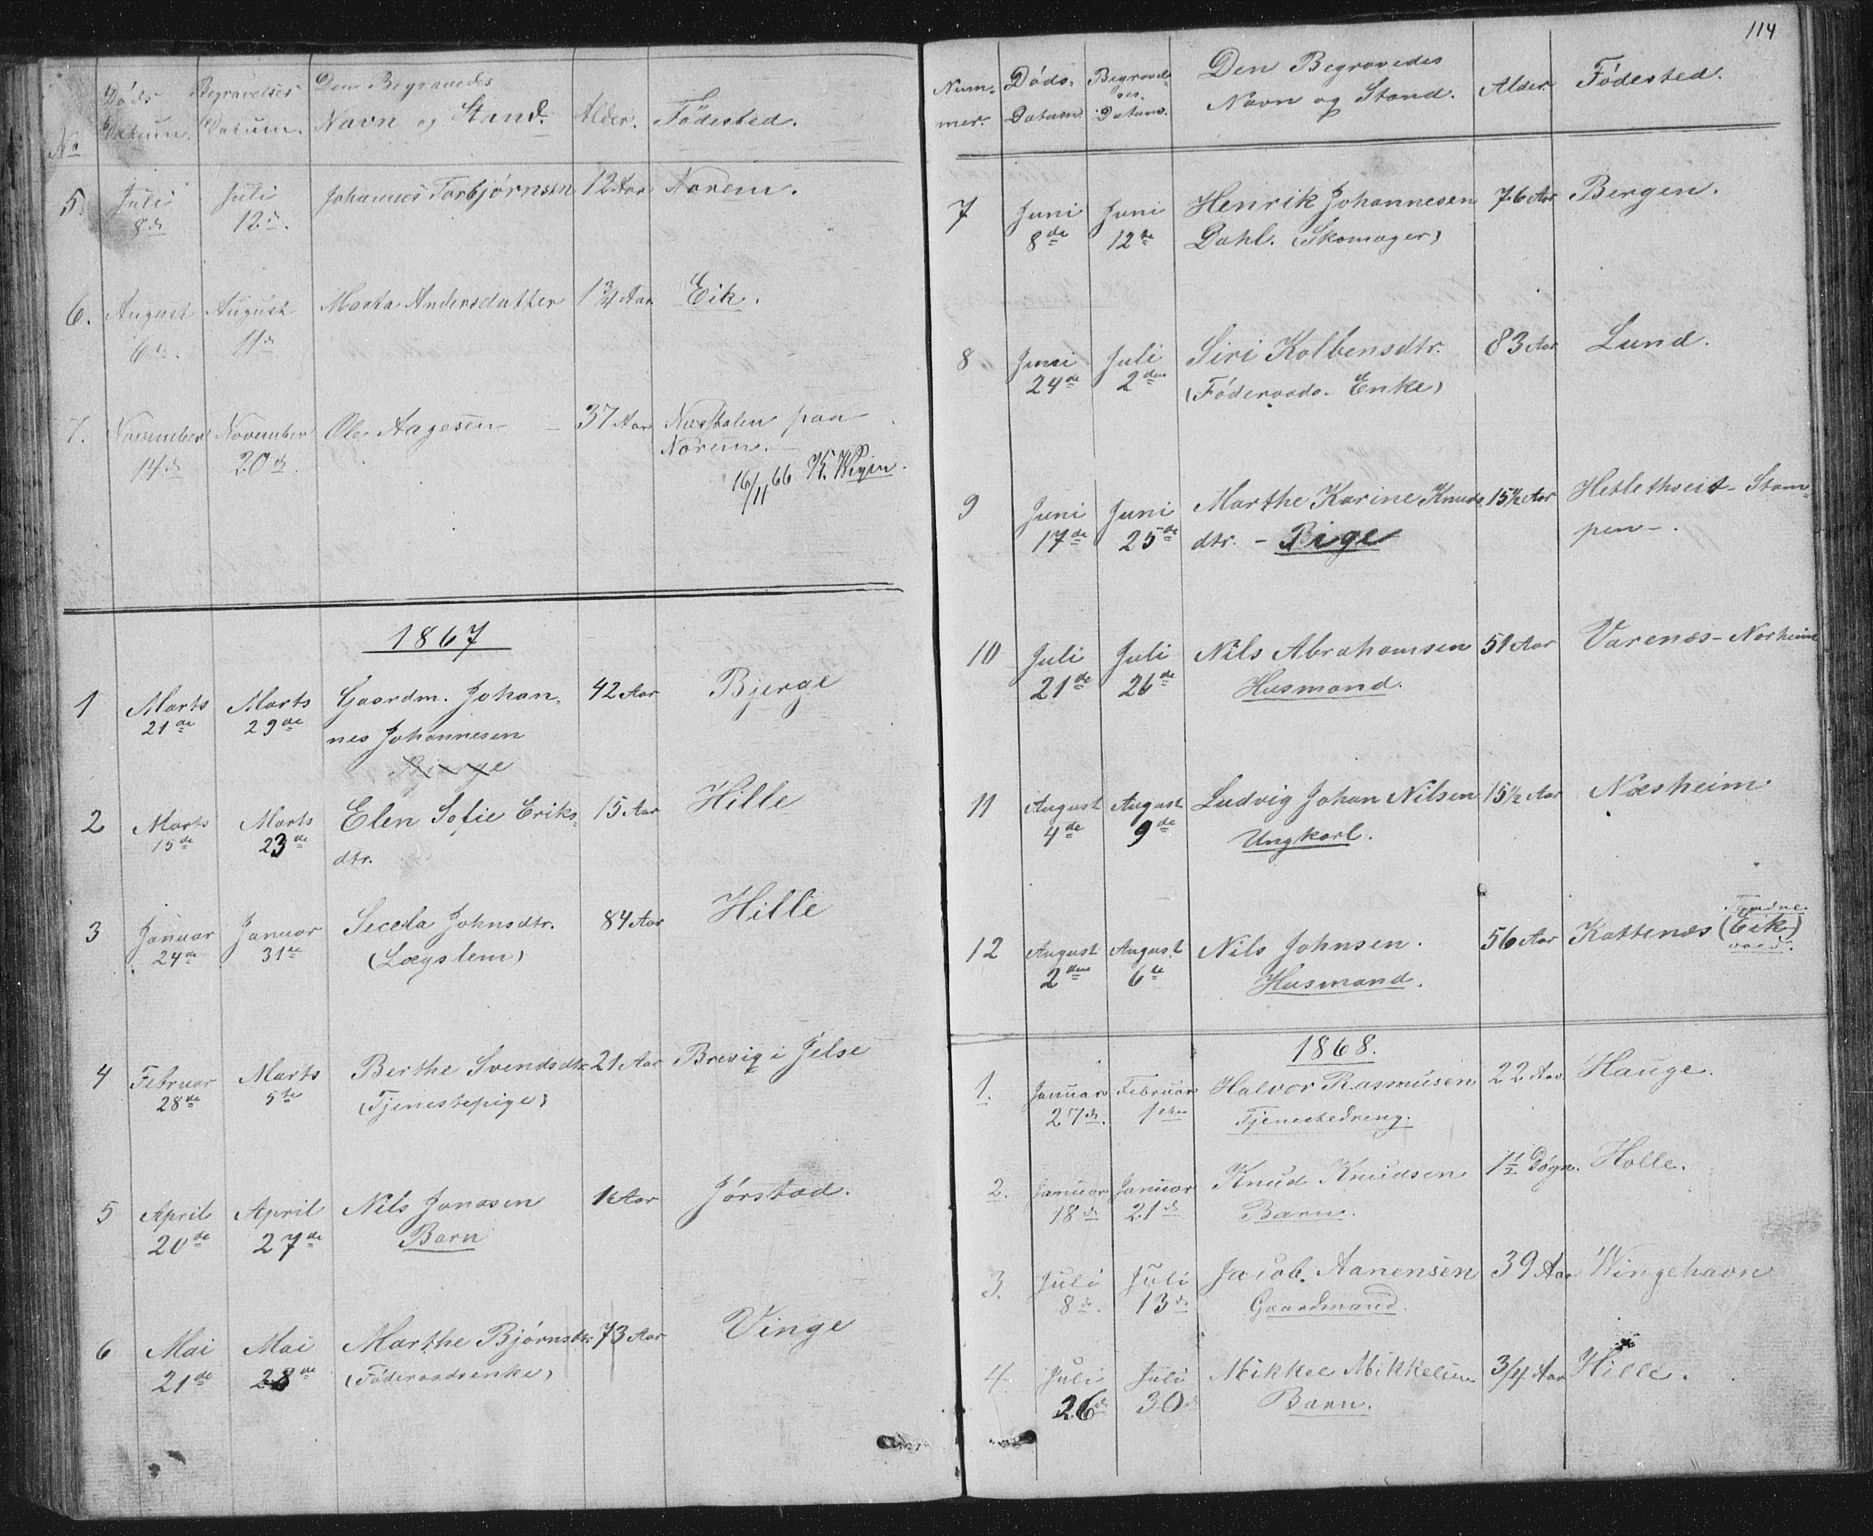 No Døds Datum. Begravelses Datum. Den Begravedes Navn og Stand. Alder. Fødested.
5. Juli 8de Juli 12te. Johannes Torbjørnsen 12 Aar Norem.
6. August 6te. August 11te Marta Andersdatter 1 3/4 Aar Eik.
7. November 14de November 20de. Ole Aagesen 37 Aar Næstalen paa
Norem.
16/11 66
1867
1 Marts 21de Marts 29de Gaardm. Johan- 42 Aar Bjerge
nes Johannesen
Bjerge
2 Marts 15de Marts 23de Elen Sofie Eriks- 15 Aar Hille
dtr.
3 Januar 24de Januar 31te Johnsdtr. 84 Aar Hille
(Lægslem)
4 Februar 28de Marts 5te Berthe Svendsdtr 21 Aar Brevig i Jelse
(Tjenestepige)
5 April 20de April 27de Nils Jonasen Aar Jørstad.
Barn
6 Mai 21de Mai 28de Marthe Bjørnsdtr 73 Aar Vinge
(Føderaadsenke)
114
Num-mer. Døds-Datum Begravel-ses-Datum. Den Begravedes Navn og Stand. Alder. Fødested.
7 Juni 8de Juni 12te Henrik Johannesen 76 Aar Bergen.
Dahl. (Skomager)
8 Juni 24de Juli 2den Siri Kolbensdtr. 83 Aar Lund.
(Føderaads- Enke)
9 Juni 17de Juni 25de Marthe Karine Knuds 15 1/2 Aar Hetlethveit- Stam-
dtr. - Pige pen-.
10 Juli 21de Juli 26de Nils Abrahamsen 51 Aar Varenæs- Norheim
Husmand.
11 August 4de August 9de Ludvig Johan Nilsen 15 1/2 Aar Næsheim
Ungkarl.
12 August 2den August 6te Nils Johnsen. 56 Aar Kattenæs (Eik)
Husmand.
1868.
1. Januar 27de. Februar 1ste Halvor Rasmusen 22 Aar Hauge.
Tjenestedreng.
2. Januar 18de Januar 21de Knud Knudsen 1 1/2 Døgn. Holle.
Barn.
3. Juli 8de. Juli 13de Jacob. Aanensen 39 Aar Wingehavn
Gaardmand.
4. Juli 26de Juli 30de Mikkel Mikkelsen 3/4 Aar Hille.
Barn.